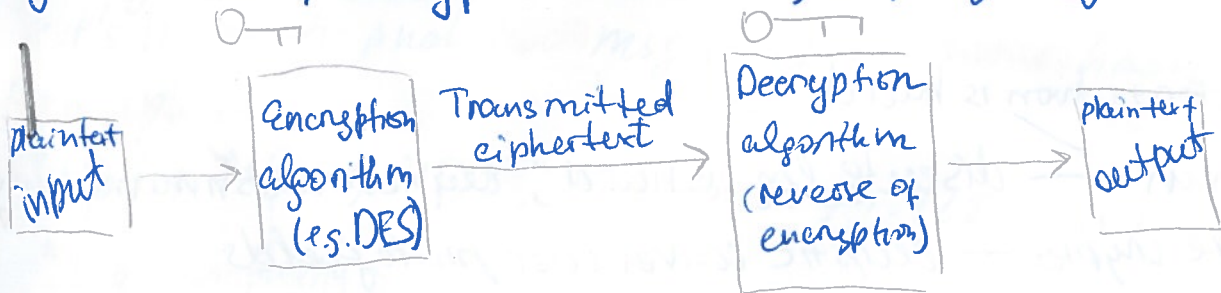 plaintext
input
Encryption
algorithm
(e.g. DES)
Transmitted
ciphertext
Decryption
algorithm
(reverse of
encryption)
plaintext
output